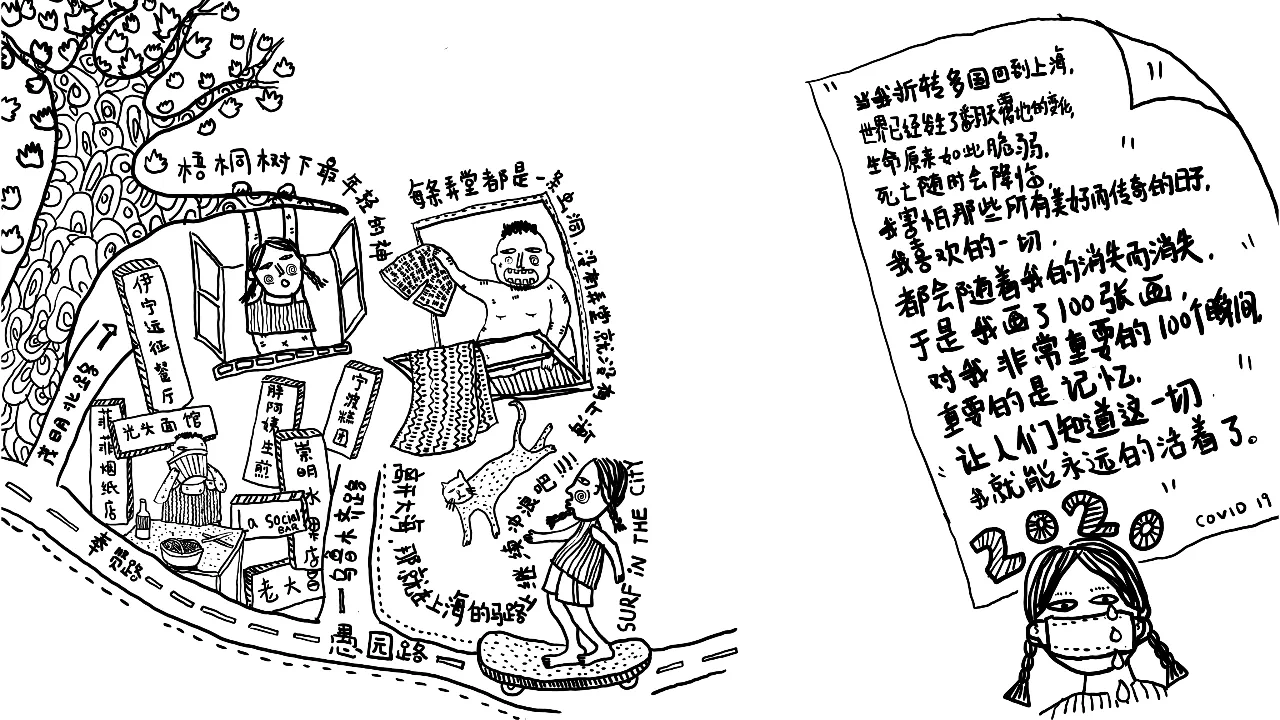 梧桐树下最年轻的神
每条弄堂都是一条虫洞,没有弄堂就没有上海
伊宁远征餐厅
茂名北路
菲菲烟纸店
光头面馆
胖阿姨生煎
宁波糕团
崇明水果店
a Social BAR
老大
奉贤路
乌鲁木齐路
愚园路
离开大海,那就在上海的马路上继续冲浪吧!!!!
SURF iN THE CiTY
当我折转多国回到上海,
世界已经发生了翻天覆地的变化,
生命原来如此脆弱,
死亡随时会降临,
我害怕那些所有美好而传奇的日子,
我喜欢的一切,
都会随着我的消失而消失,
于是我画了100张画,
对我非常重要的100个瞬间,
重要的是记忆,
让人们知道这一切
我就能永远的活着了。
COVID 19
2020